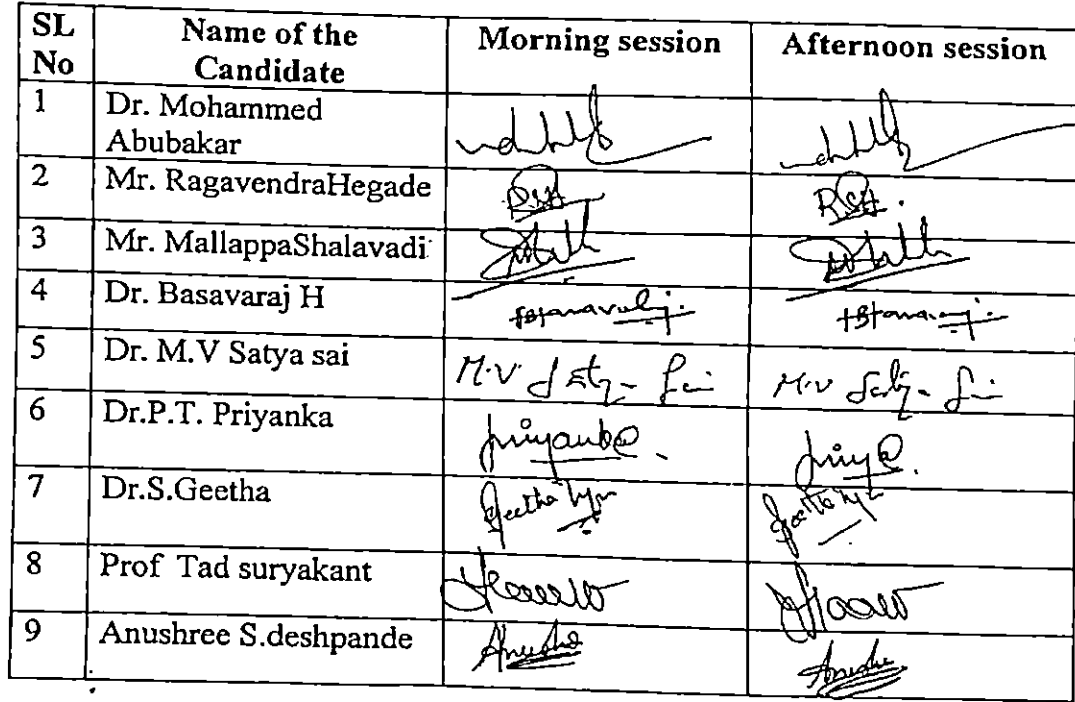 SL No Name of the Candidate Morning session Afternoon session
1 Dr. Mohammed Abubakar
2 Mr. RagavendraHegade RSH RSH.
3 Mr. MallappaShalavadi
4 Dr. Basavaraj H
5 Dr. M.V Satya sai M.V Satya Sai M.V Satya Sai
6 Dr.P.T. Priyanka priyanka. priya.
7 Dr.S.Geetha Geetha
8 Prof Tad suryakant
9 Anushree S.deshpande Anusha Anusha